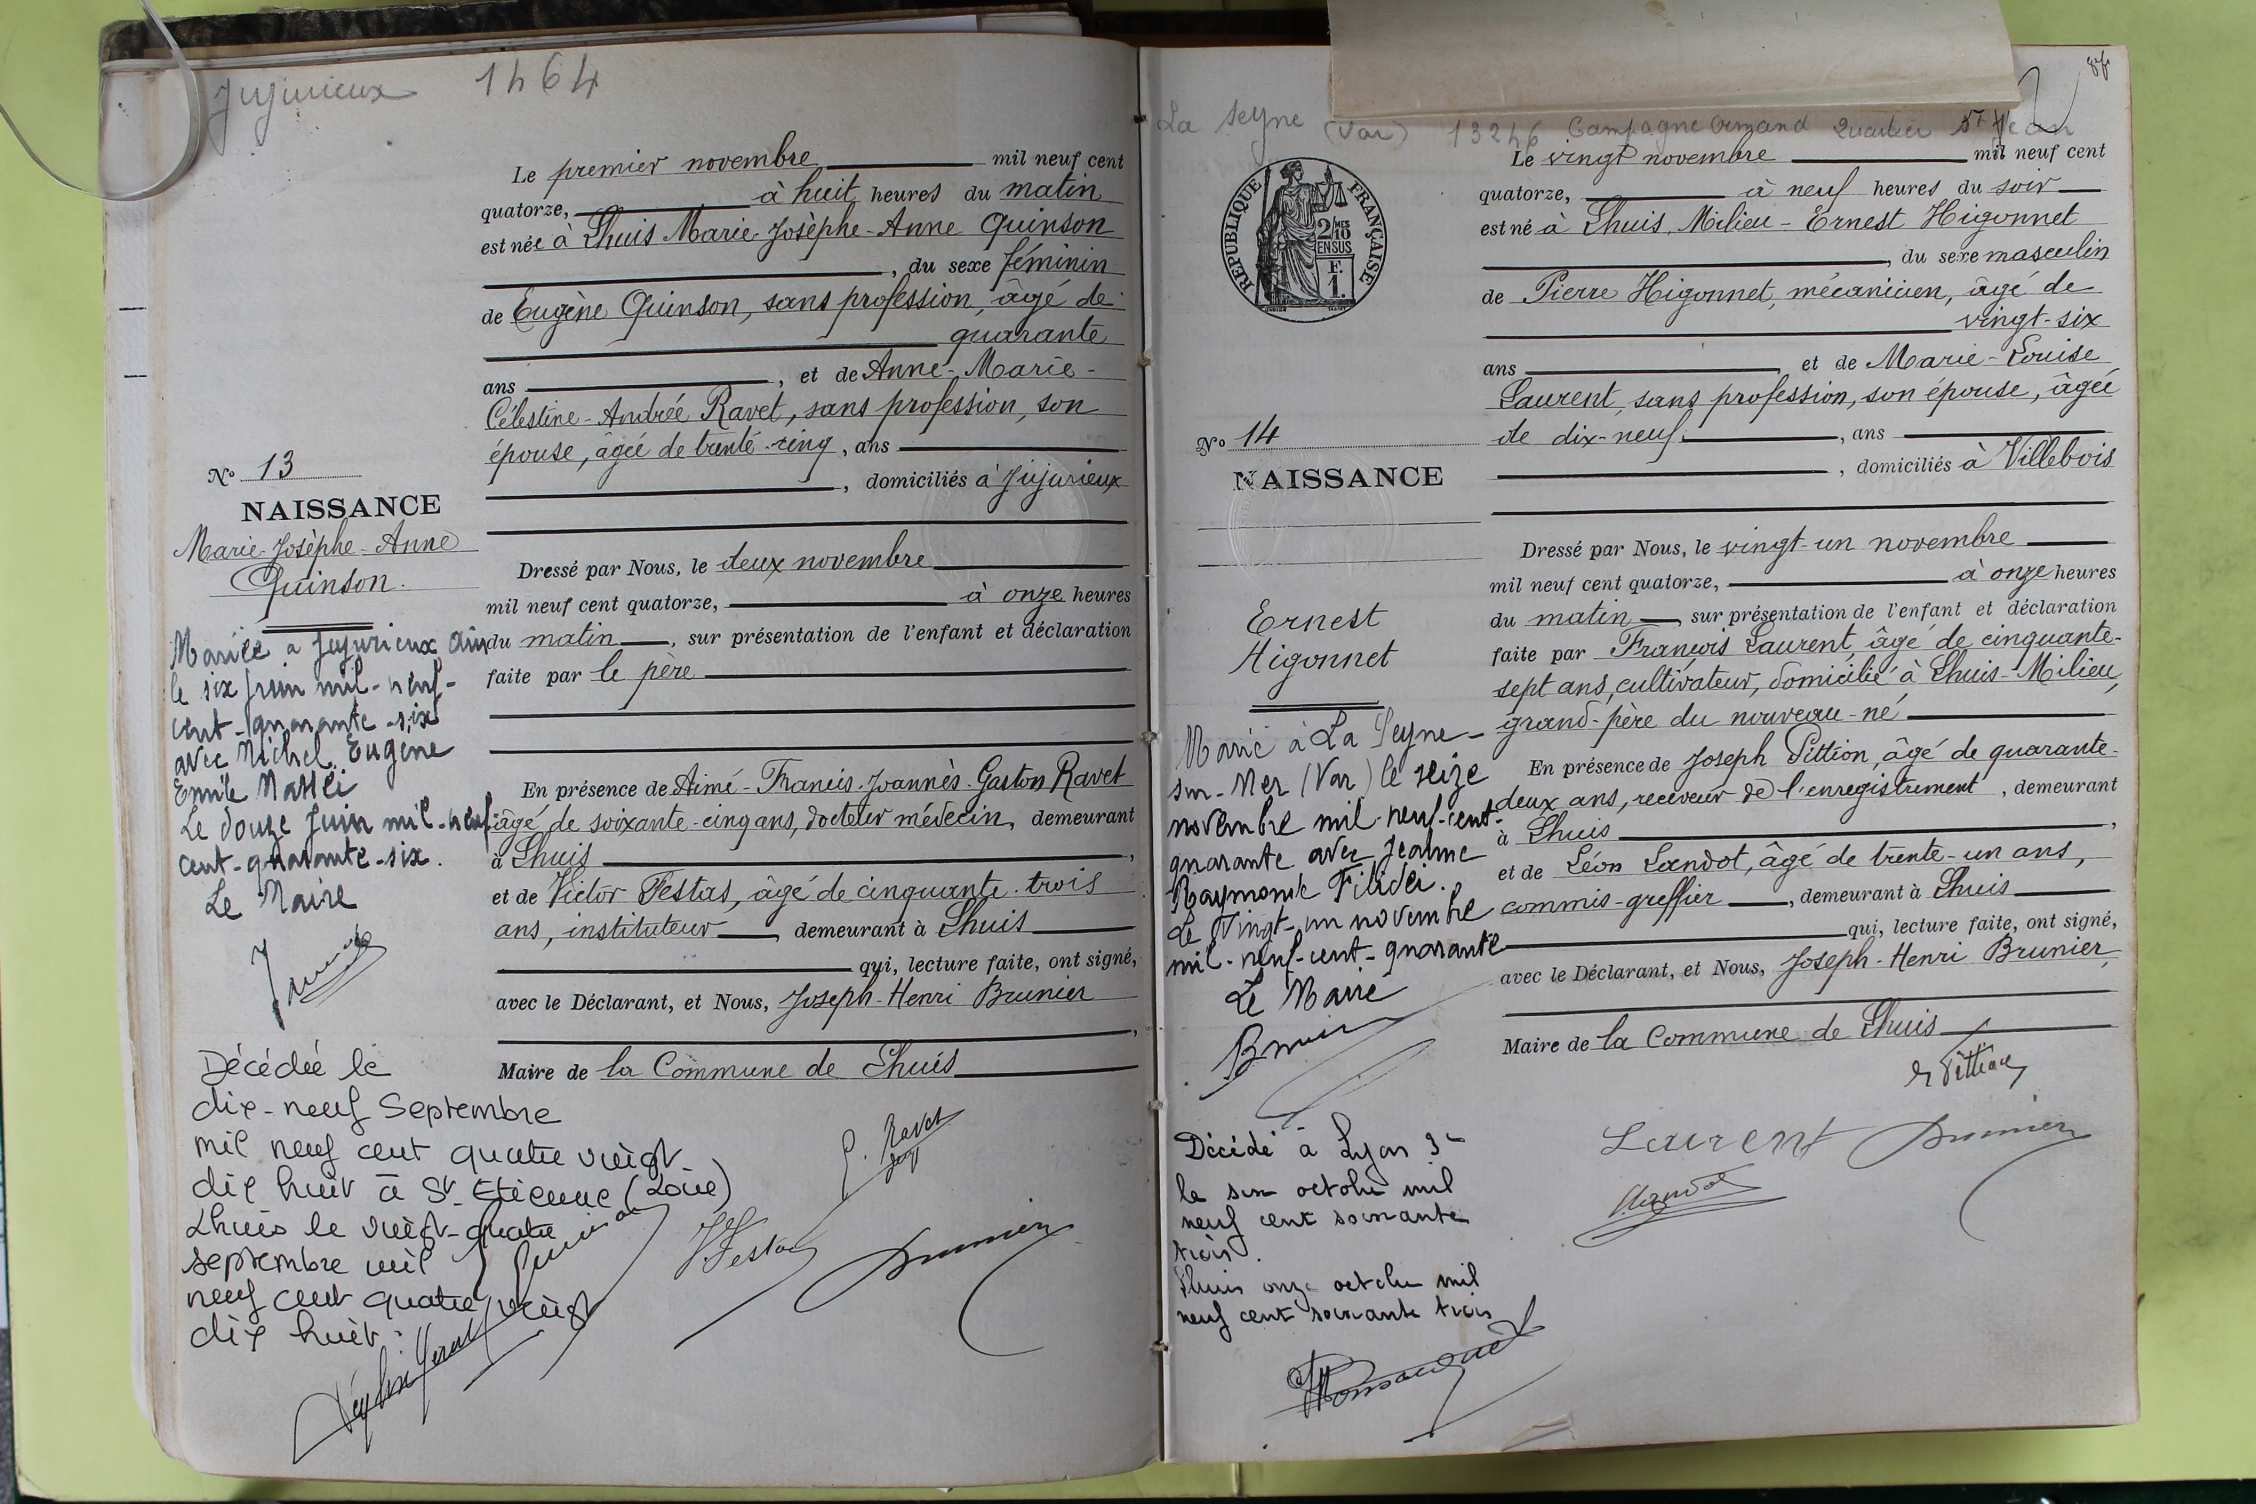 Jujurieux 1464
Le premier novembre mil neuf cent
quatorze, à huit heures du matin
est née à Lhuis Marie-Josèphe-Anne Quinson
, du sexe féminin
de Eugène Quinson, sans profession, âgé de
quarante
ans , et de Anne-Marie-
Célestine-Andrée Ravet, sans profession, son
épouse, âgée de trente-cinq, ans
, domiciliés à Jujurieux
Dressé par Nous, le deux novembre
mil neuf cent quatorze, à onze heures
du matin , sur présentation de l'enfant et déclaration
faite par le père
En présence de Aimé-Francis-Joannès-Gaston Ravet
âgé de soixante-cinq ans, docteur médecin, demeurant
à Lhuis ,
et de Victor Festas, âgé de cinquante-trois
ans, instituteur , demeurant à Lhuis
qui, lecture faite, ont signé,
avec le Déclarant, et Nous, Joseph-Henri Brunier
,
Maire de la Commune de Lhuis
G. Ravet
VFestas
Brunier
No 13
NAISSANCE
Marie-Josèphe-Anne
Quinson.
Mariée à Jujurieux Ain
le six juin mil-neuf-
cent-quarante-six
avec Michel Eugène
Emile
Le douze juin mil-neuf-
cent-quarante-six.
Le Maire
Décédée le
dix-neuf Septembre
mil neuf cent quatre vingt
dix huit à St-Etienne (Loire)
Lhuis le vingt-quatre
septembre mil
neuf cent quatre vingt
dix huit.
La Seyne (Var) 13246 Campagne Armand Quartier St Jean
Le vingt novembre mil neuf cent
quatorze, à neuf heures du soir
est né à Lhuis, Milieu-Ernest Higonnet
, du sexe masculin
de Pierre Higonnet, mécanicien, âgé de
vingt-six
ans , et de Marie-Louise
Laurent, sans profession, son épouse, âgée
de dix-neuf , ans
, domiciliés à Villebois
Dressé par Nous, le vingt-un novembre
mil neuf cent quatorze, à onze heures
du matin , sur présentation de l'enfant et déclaration
faite par François Laurent, âgé de cinquante-
sept ans, cultivateur, domicilié à Lhuis-Milieu,
grand-père du nouveau-né
En présence de Joseph Pittion, âgé de quarante-
deux ans, receveur de l'enregistrement , demeurant
à Lhuis ,
et de Léon Landot, âgé de trente-un ans,
commis-greffier , demeurant à Lhuis
qui, lecture faite, ont signé,
avec le Déclarant, et Nous, Joseph-Henri Brunier,
Maire de la Commune de Lhuis
Pittion
Laurent Brunier
Landot
REPUBLIQUE FRANÇAISE
2/10 MES
EN SUS
F.
1.
No 14
NAISSANCE
Ernest
Higonnet
Marié à La Seyne-
sur-Mer (Var) le seize
novembre mil-neuf-cent-
quarante avec Jeanne
Raymonde Filidei.
Le Vingt-un novembre
mil-neuf-cent-quarante
Le Maire
Brunier
Décédé à Lyon 3e
le six octobre mil
neuf cent soixante
trois.
Lhuis onze octobre mil
neuf cent soixante trois